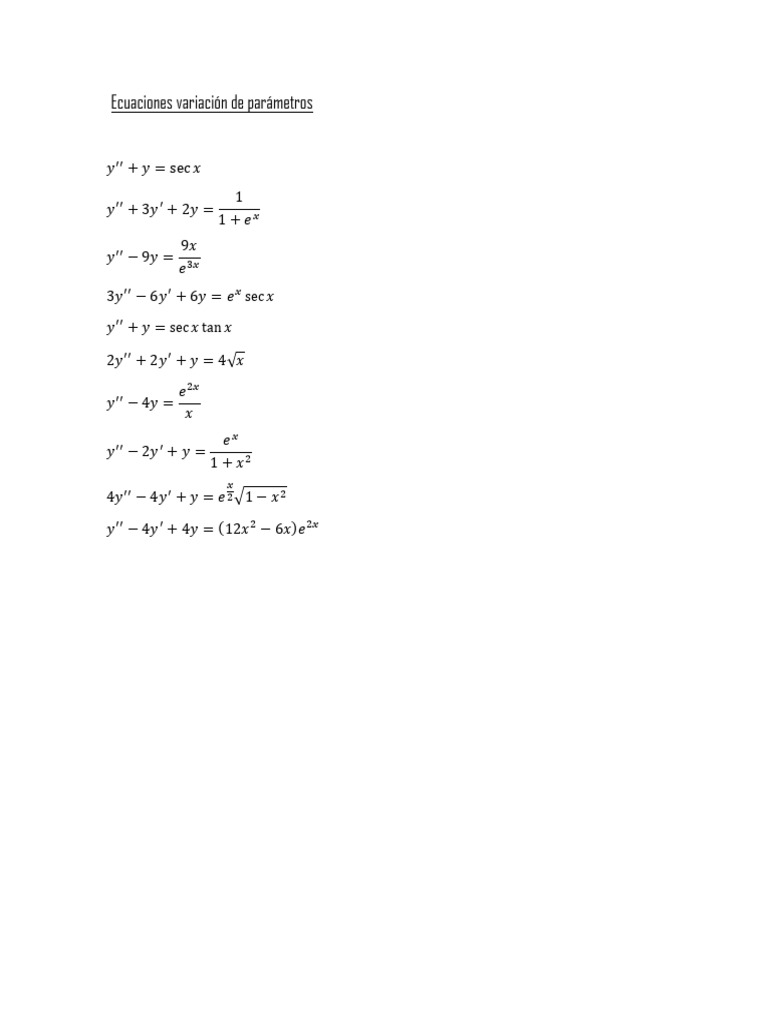 Ecuaciones variación de parámetros
y′′ + y = sec x
y′′ + 3y′ + 2y = 1/(1 + eˣ)
y′′ − 9y = 9x/e³ˣ
3y′′ − 6y′ + 6y = eˣ sec x
y′′ + y = sec x tan x
2y′′ + 2y′ + y = 4√x
y′′ − 4y = e²ˣ/x
y′′ − 2y′ + y = eˣ/(1 + x²)
4y′′ − 4y′ + y = e^(x/2)√(1 − x²)
y′′ − 4y′ + 4y = (12x² − 6x)e²ˣ